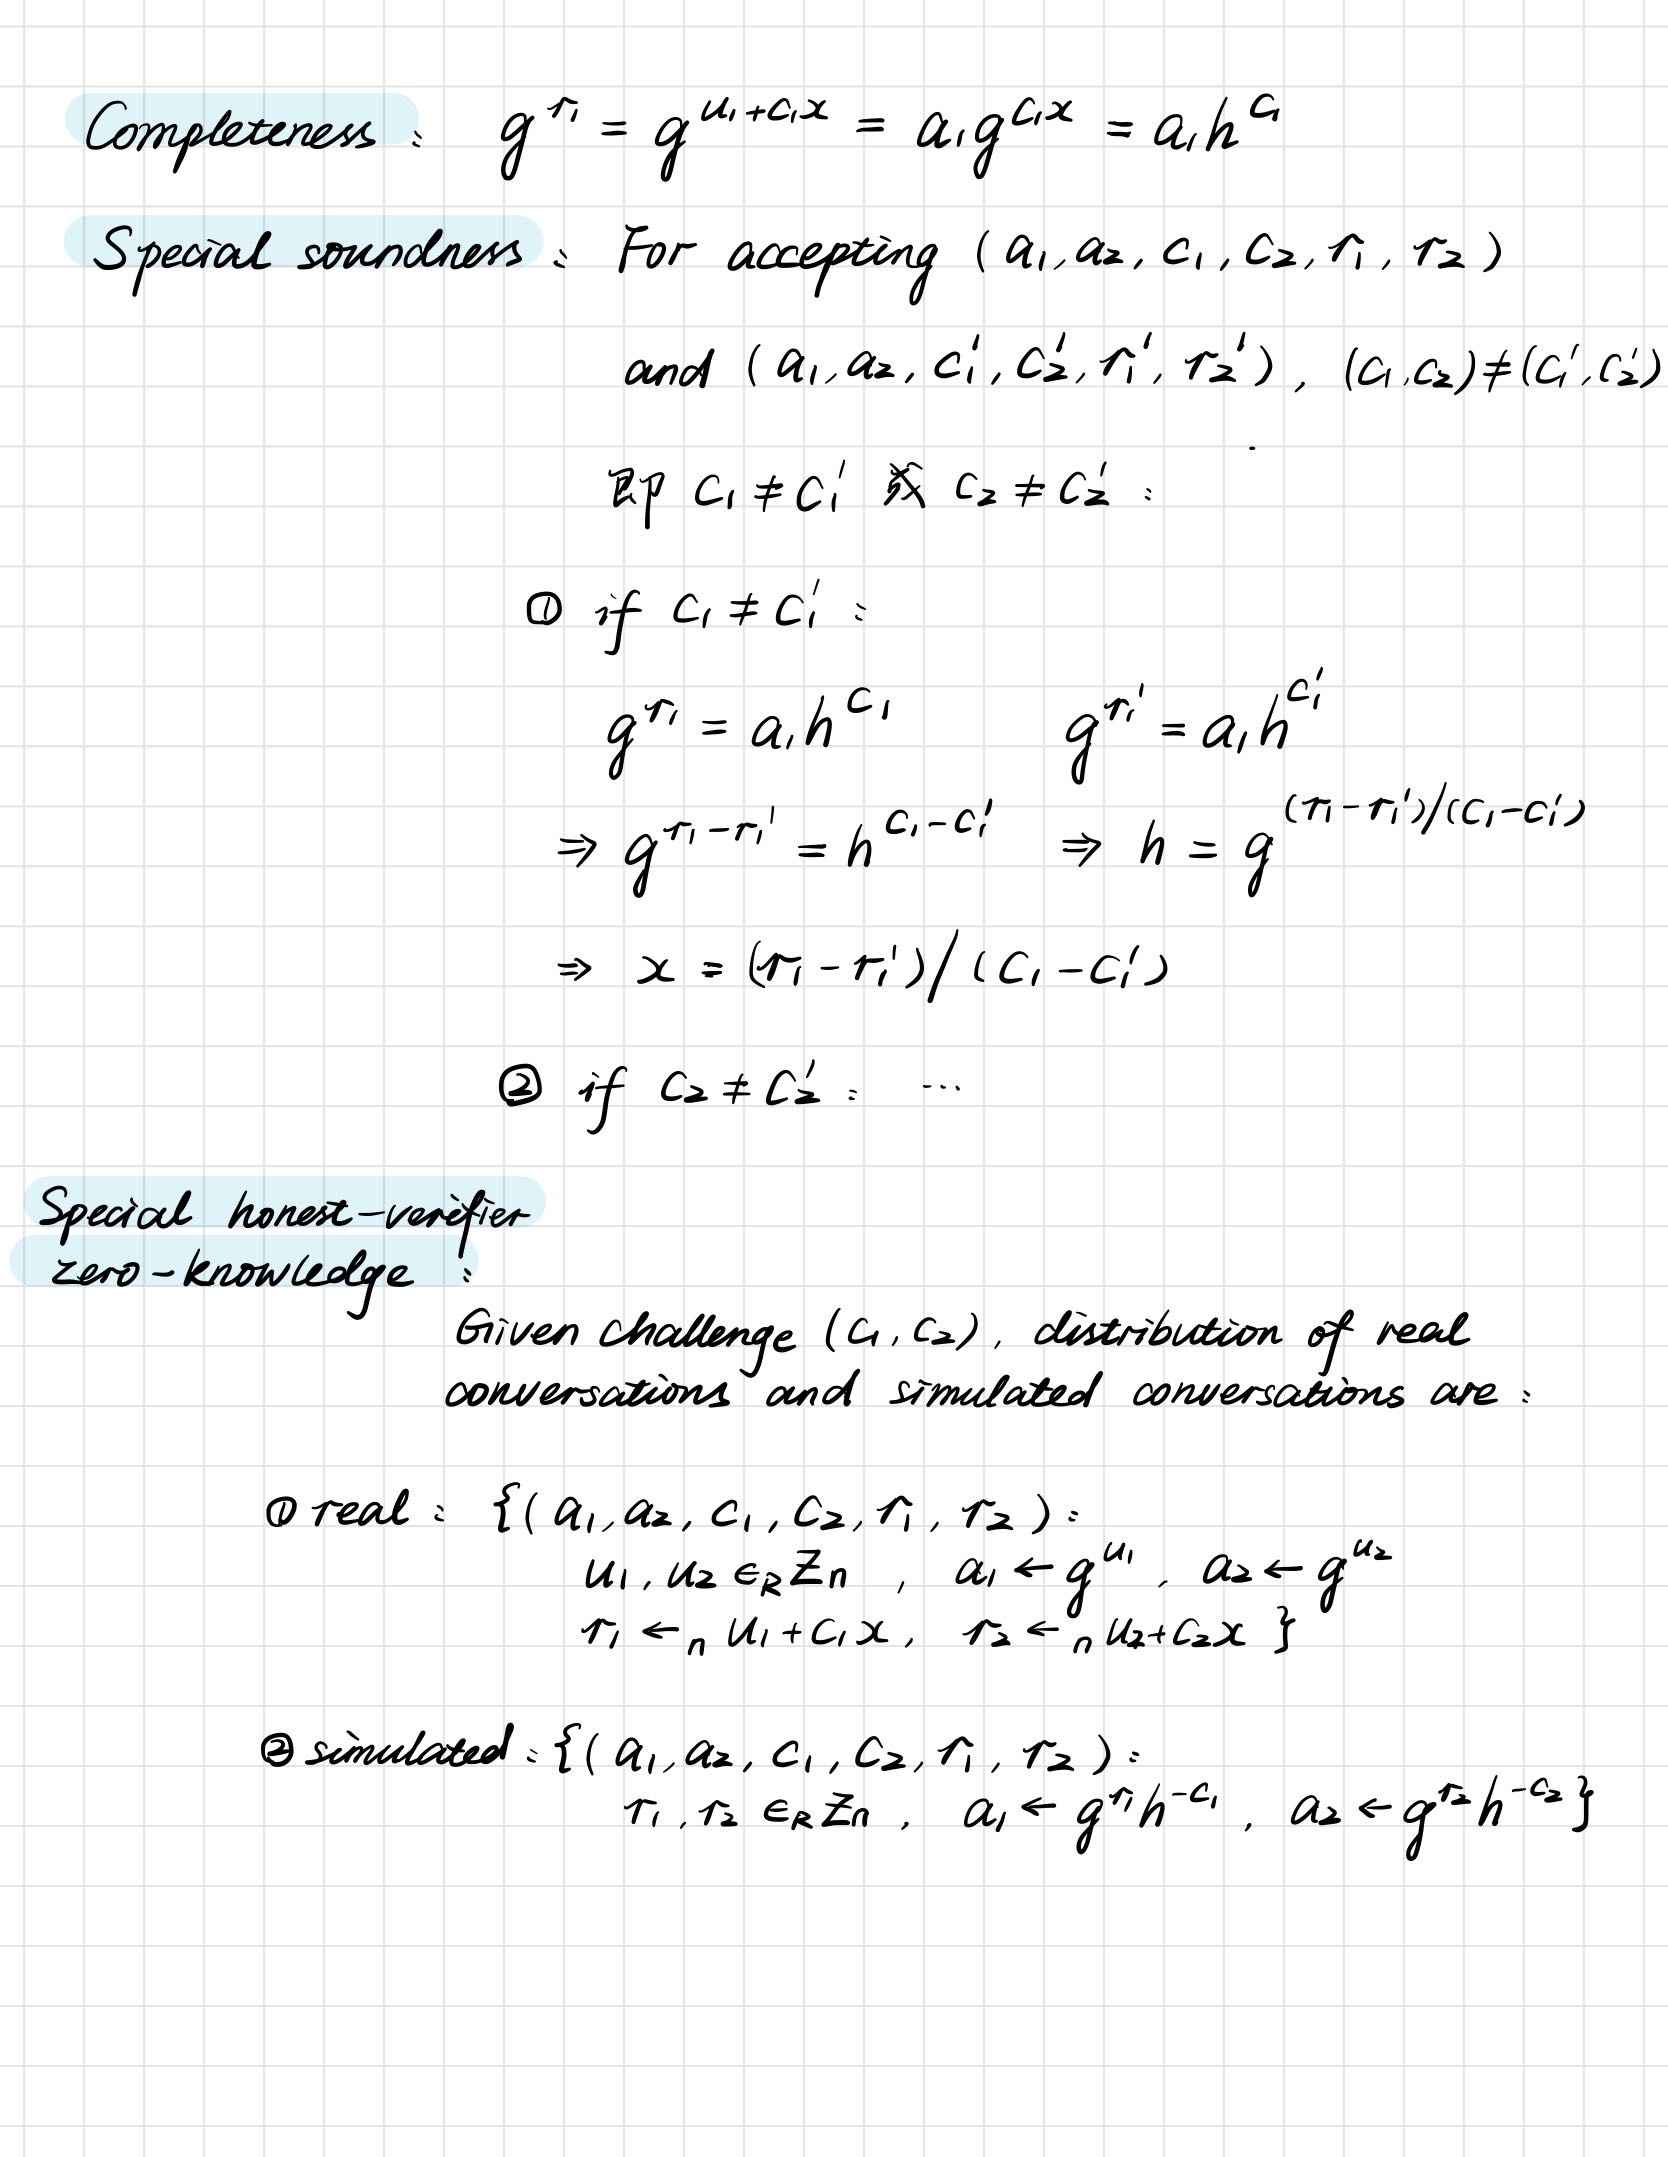 Completeness : g^{r₁} = g^{u₁+c₁x} = a₁g^{c₁x} = a₁h^{c₁}
Special soundness : For accepting (a₁, a₂, c₁, c₂, r₁, r₂)
and (a₁, a₂, c₁', c₂', r₁', r₂'), (c₁, c₂) ≠ (c₁', c₂')
即 c₁ ≠ c₁' 或 c₂ ≠ c₂' :
① if c₁ ≠ c₁' :
g^{r₁} = a₁h^{c₁} g^{r₁'} = a₁h^{c₁'}
⇒ g^{r₁-r₁'} = h^{c₁-c₁'} ⇒ h = g^{(r₁-r₁')/(c₁-c₁')}
⇒ x = (r₁-r₁')/(c₁-c₁')
② if c₂ ≠ c₂' : ...
Special honest-verifier
zero-knowledge :
Given challenge (c₁, c₂), distribution of real
conversations and simulated conversations are :
① real : {(a₁, a₂, c₁, c₂, r₁, r₂) :
u₁, u₂ ∈_R Z_n , a₁ ← g^{u₁} , a₂ ← g^{u₂}
r₁ ←_n u₁+c₁x , r₂ ←_n u₂+c₂x }
② simulated : {(a₁, a₂, c₁, c₂, r₁, r₂) :
r₁, r₂ ∈_R Z_n , a₁ ← g^{r₁}h^{-c₁} , a₂ ← g^{r₂}h^{-c₂} }